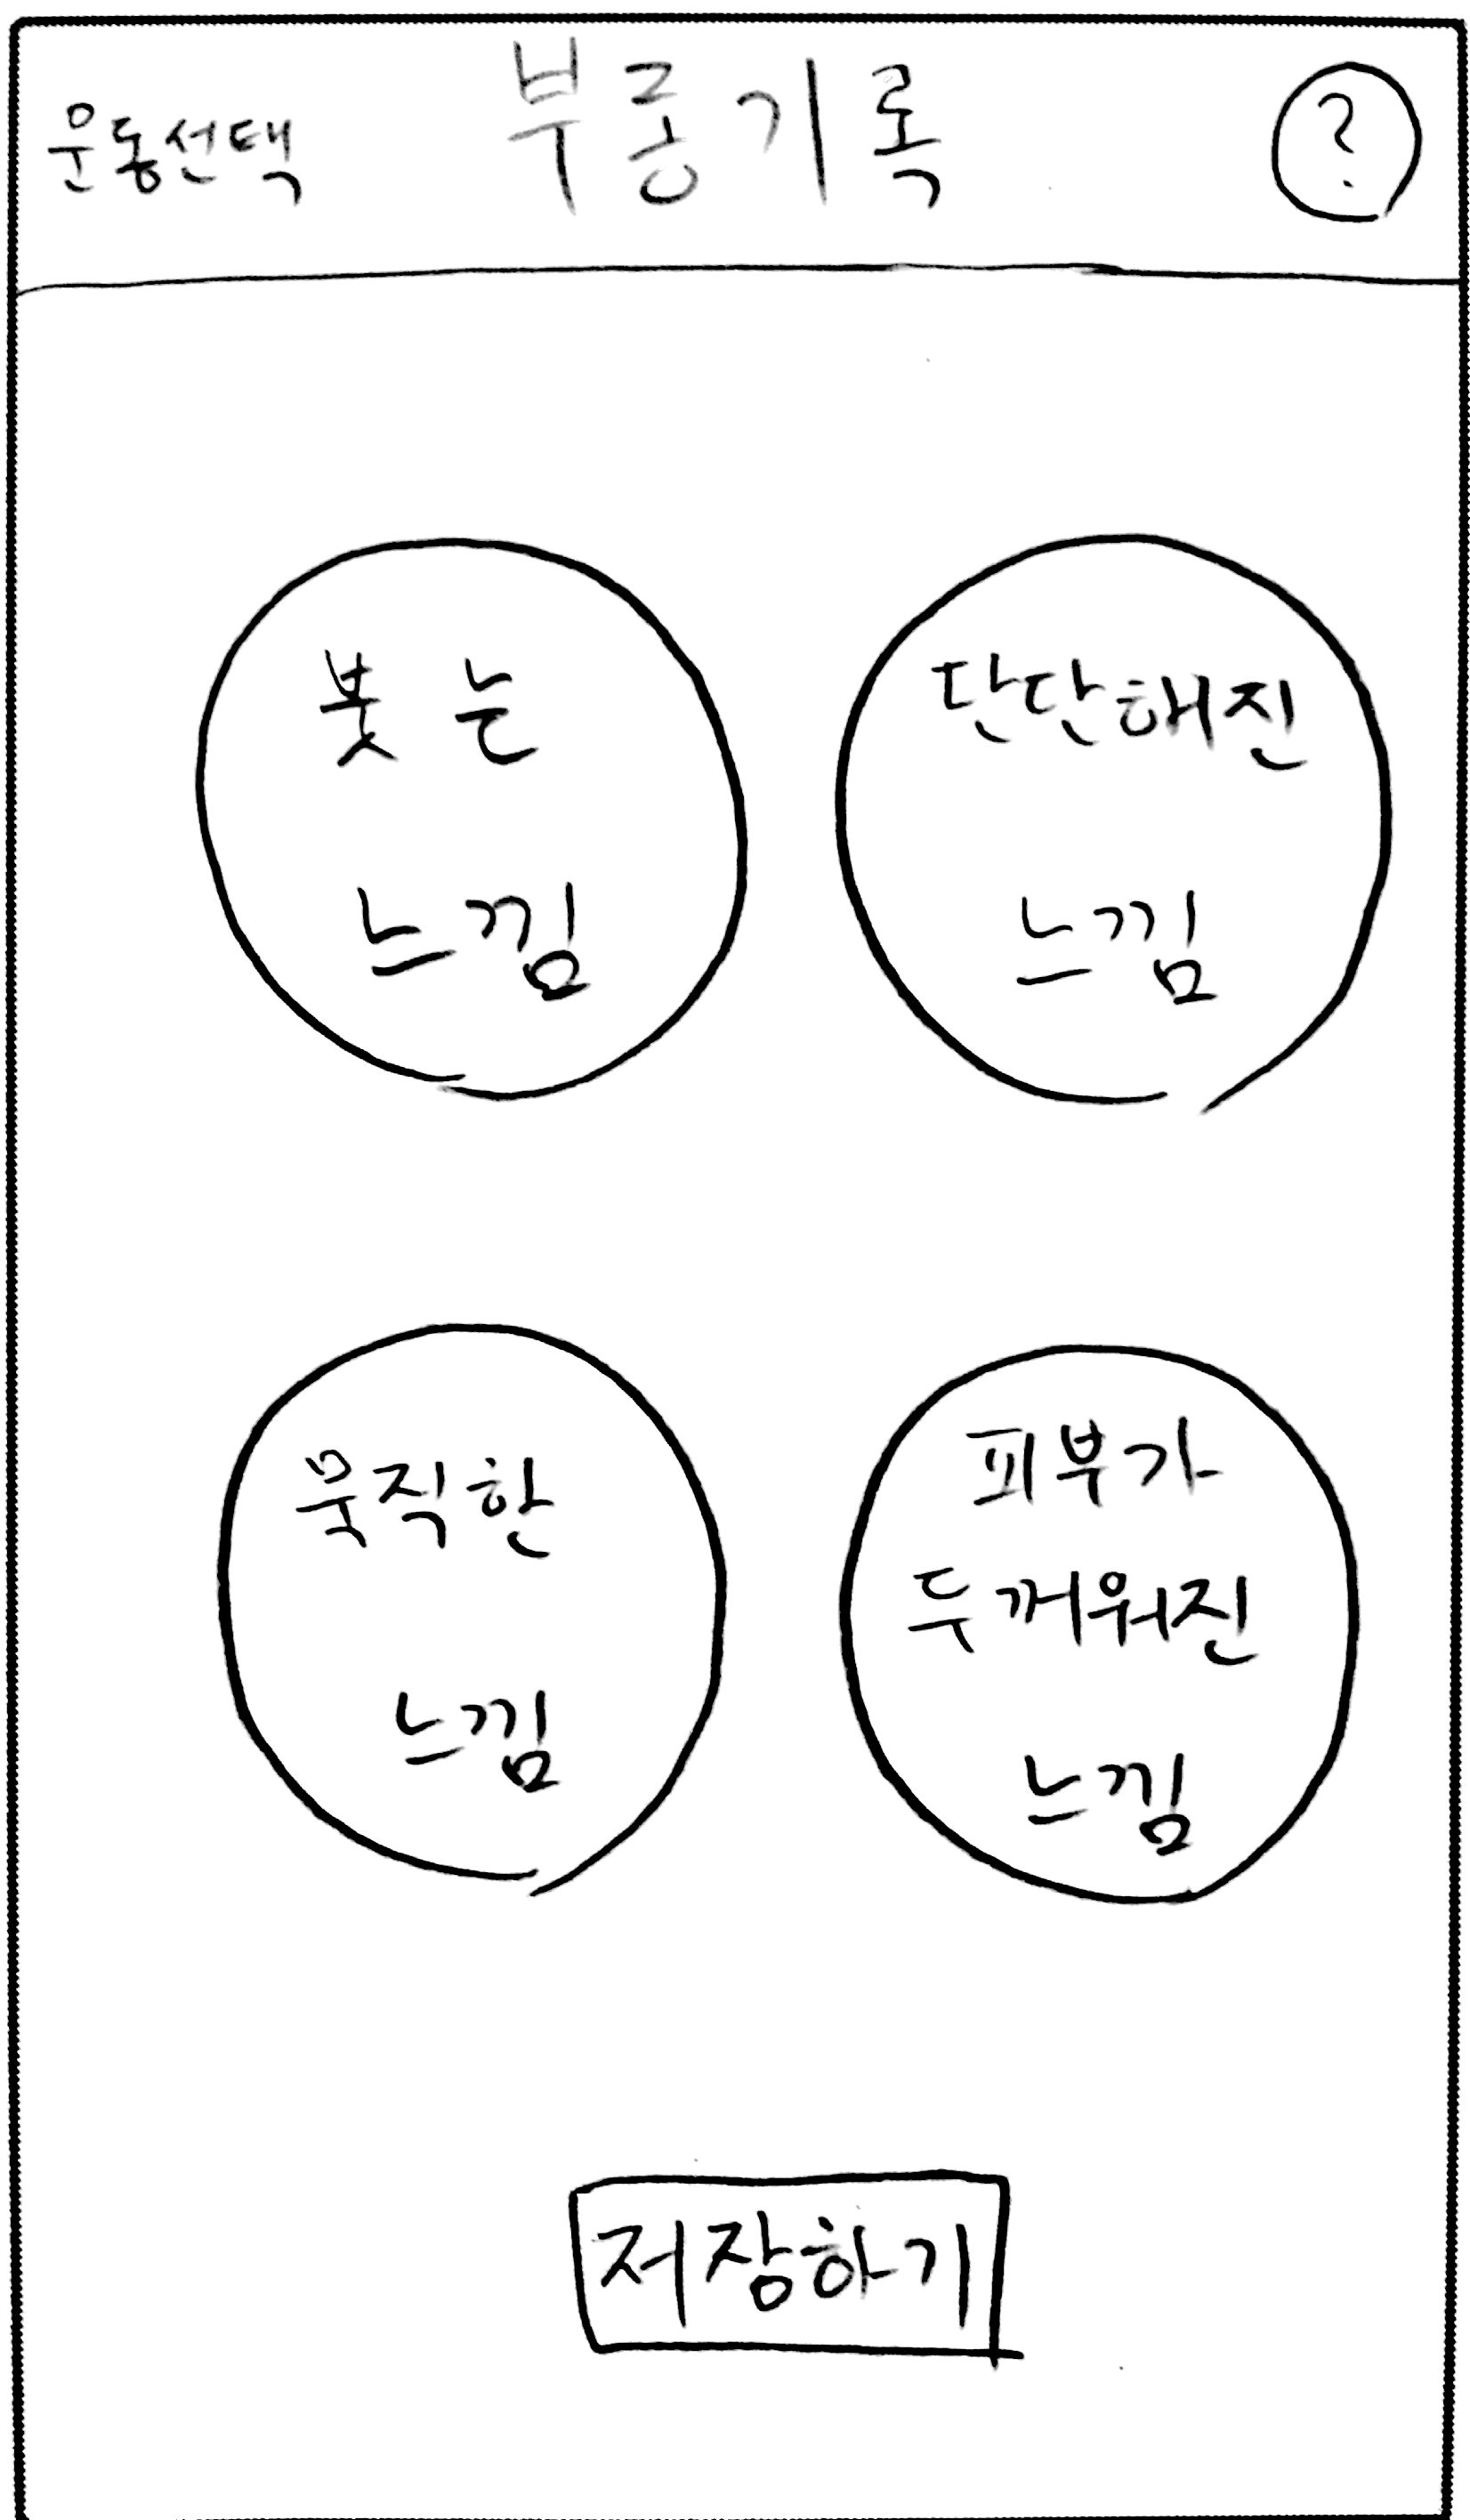 운동선택 부종기록 ?
붓는
느낌
단단해진
느낌
묵직한
느낌
피부가
두꺼워진
느낌
저장하기